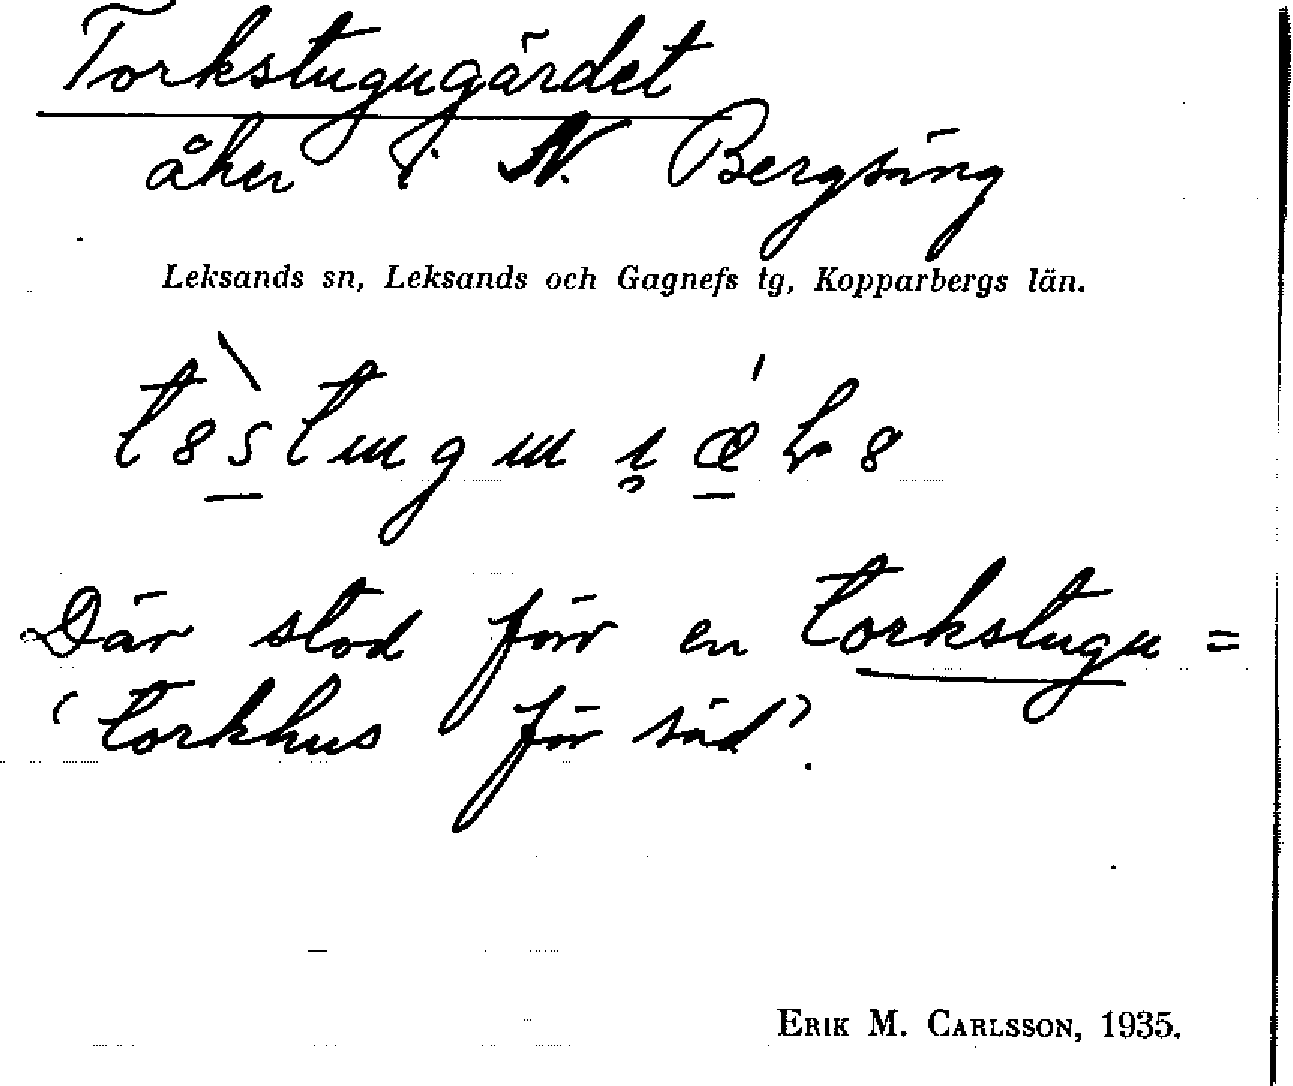 Torkstugugärdet
åker i N. Bergsäng
Leksands sn, Leksands och Gagnefs tg, Kopparbergs län.
Där stod förr en torkstugu =
'torkhus för säd'.
ERIK M. CARLSSON, 1935.